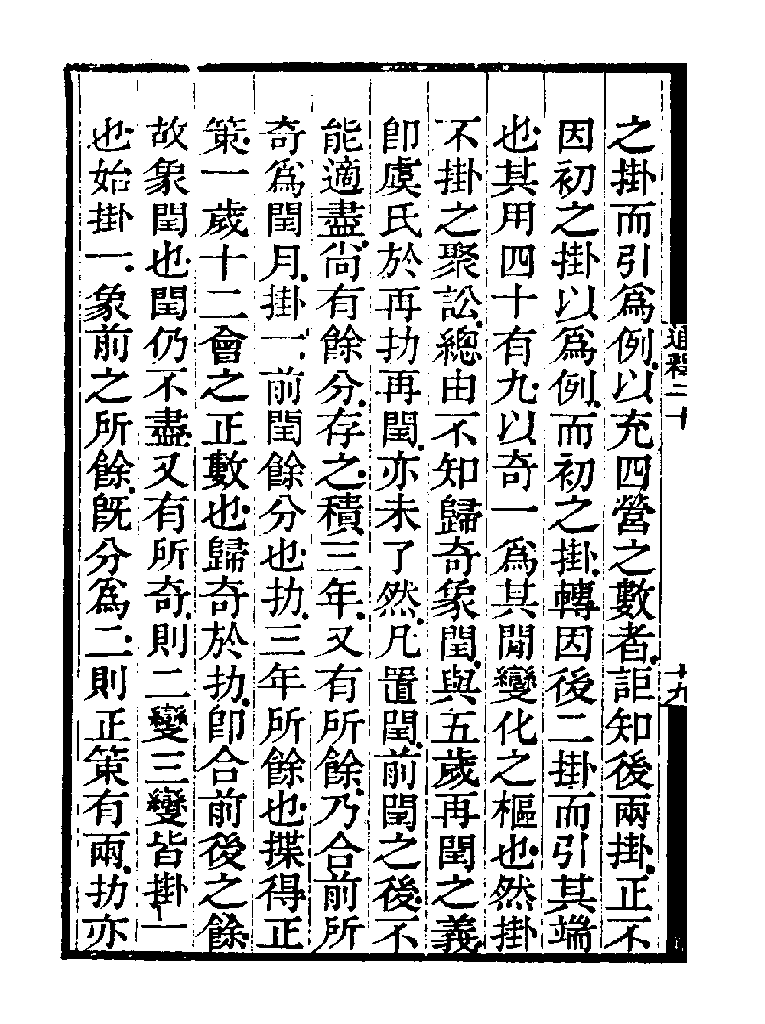 之掛而引爲例以充四營之數者詎知後兩掛正不
因初之掛以爲例而初之掛轉因後二掛而引其端
也其用四十有九以奇一爲其閒變化之樞也然掛
不掛之聚訟總由不知歸奇象閏與五歲再閏之義
卽虞氏於再扐再閏亦未了然凡置閏前閏之後不
能適盡尙有餘分存之積三年又有所餘乃合前所
奇爲閏月掛一前閏餘分也扐三年所餘也揲得正
策一歲十二會之正數也歸奇於扐卽合前後之餘
故象閏也閏仍不盡又有所奇則二變三變皆掛一
也始掛一象前之所餘旣分爲二則正策有兩扐亦
通釋二十
十九